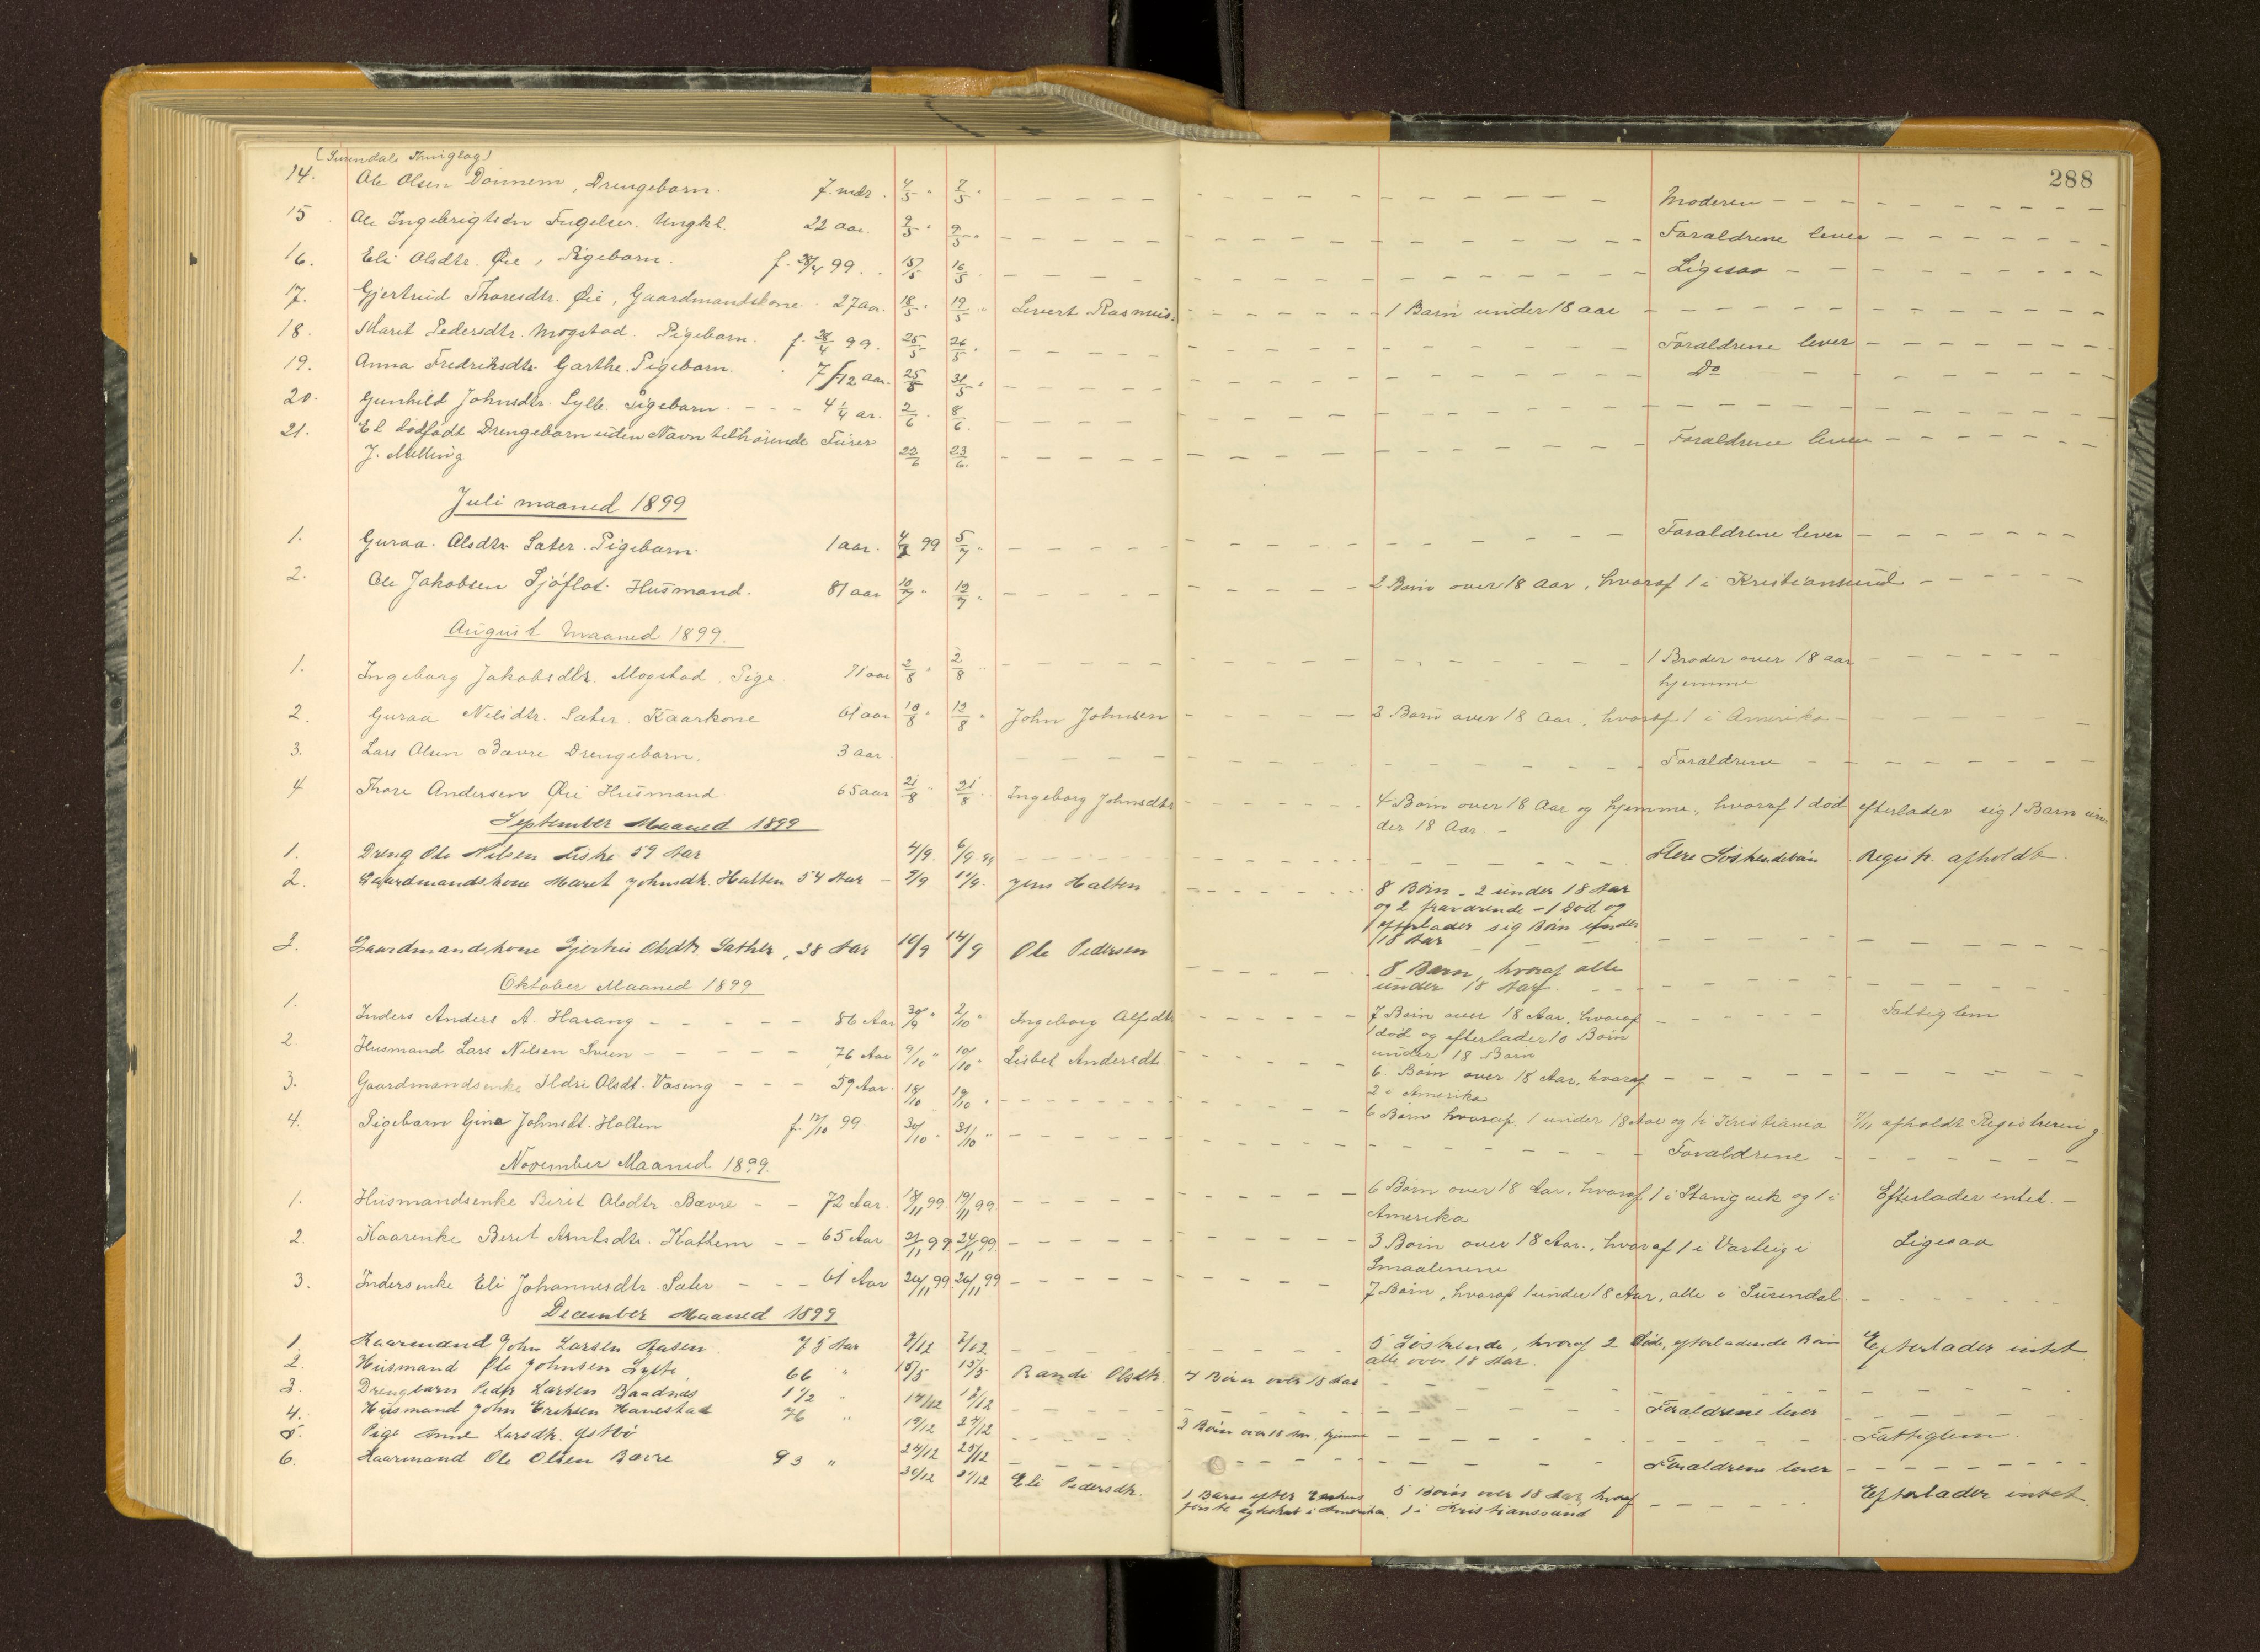 (Surendals Thinglag)
288
14. Ole Olsen Dønnem, Drengebarn. 7. mdr. 4/5 " 7/5 " Moderen
15. Ole Ingebrigtsen Fugelsø. Ungkl. 22 aar. 9/5 " 9/5 " Forældrene lever
16. Eli Olsdtr. Øie, Pigebarn. f. 28/4 99. 15/5 16/5 Ligesaa
17. Gjertrud Thoresdtr. Øie, Gaardmandskone. 27 aar. 18/5 " 19/5 " Sivert Rasmus. 1 Barn under 18 aar
18. Marit Pedersdtr. Mogstad. Pigebarn. f. 28/4 99. 25/5 26/5 Forældrene lever
19. Anna Fredriksdtr. Garthe. Pigebarn. 7/12 aar. 25/5 31/5 " Do
20. Gunhild Johnsdtr. Sylte. Pigebarn. 4 1/4 ar. 2/6 " 8/6.
21. Et dødfødt Drengebarn uden Navn tilhørende Furer Forældrene lever
J. Melling 22/6 23/6.
Juli maaned 1899
1. Guraa. Olsdtr. Sæter. Pigebarn. 1 aar. 4/7 99 5/7 " Forældrene lever
2. Ole Jakobsen Sjøflot. Husmand. 81 aar 10/7 " 12/7 " 2 Børn over 18 aar, hvoraf 1 i Kristiansund
August Maaned 1899.
1. Ingeborg Jakobsdtr. Mogstad. Pige. 71 aar 2/8 " 2/8 " 1 Broder over 18 aar
hjemme
2. Guraa Nilsdtr. Sæter. Kaarkone 61 aar 10/8 " 12/8 " John Johnsen 3 Børn over 18 aar, hvoraf 1 i Amerika
3. Lars Olsen Bævre Drengebarn. 3 aar. Forældrene
4 Thore Andersen Øie Husmand 65 aar 21/8 " 21/8 " Ingeborg Johnsdtr 4 Børn over 18 Aar og hjemme, hvoraf 1 død efterlader sig 1 Barn un-
der 18 Aar.
September Maaned 1899
1. Dreng Ole Nilsen Fiske 59 Aar 4/9. 6/9. 99 Flere Søskendebørn Regist. afholdt
2. Gaardmandskone Marit Johnsdtr. Halten 54 Aar 9/9 11/9. Jens Halten 8 Børn - 2 under 18 Aar
og 2 fraværende - 1 Død og
efterlader sig Børn under
18 Aar
3. Gaardmandskone Gjertru Olsdtr. Sæther, 38 Aar 10/9 14/9 Ole Pedersen 8 Børn, hvoraf alle
under 18 Aar.
Oktober Maaned 1899
1. Inders Anders A. Harang 86 Aar 30/9 " 2/10 " Ingeborg Alfsdtr 7 Børn over 18 Aar, hvoraf Fattiglem
1 død og efterlader 10 Børn
under 18 Børn
2. Husmand Lars Nilsen Svien 76 Aar 9/10 " 10/10 " Lisbet Andersdtr. 6. Børn over 18 Aar, hvoraf
2 i Amerika
3. Gaardmandsenke Ildri Olsdt. Vaseng 59 Aar. 18/10 19/10 " 6 Børn hvoraf 1 under 18 Aar og 1 i Kristiania 7/11 afholdt Registrering
4. Pigebarn Gina Johnsdt. Holten f. 12/10 99. 30/10 " 31/10 " Forældrene
November Maaned 1899.
1. Husmandsenke Berit Olsdtr. Bævre 72 Aar. 18/11 99. 19/11 99. 6 Børn over 18 Aar, hvoraf 1 i Stangvik og 1 i Efterlader intet.
Amerika
2. Kaarenke Beret Arntsdtr. Kattem 65 Aar 21/11 99 24/11 99. 3 Børn over 18 Aar., hvoraf 1 i Varteig i Ligesaa
Smaalenene
3. Indersenke Eli Johannesdtr. Sæter 61 Aar 24/11 99. 26/11 99 7 Børn, hvoraf 1 under 18 Aar, alle i Surendal
December Maaned 1899
1. Kaarmand John Larsen Aasen 75 Aar 2/12 7/12 5 Søskende, hvoraf 2 Døde, efterladende Børn Efterlader intet.
alle over 18 Aar.
2. Husmand Ole Johnsen Sylte 66 " 15/5 15/5 Randi Olsdtr. 4 Børn over 18 Aar
3. Drengbarn Peder Larsen Baadnæs 1 1/2 " 14/12 18/12 Forældrene lever
4. Husmand John Eriksen Hanestad 76 " 19/12 27/12 3 Børn over 18 Aar. hjemme Fattiglem.
5. Pige Anne Larsdtr. Ystbø 24/12 28/12 Forældrene lever
6. Kaarmand Ole Olsen Bævre 93 " 30/12 31/12 Eli Pedersdtr. 1 Barn efter Enkens 5 Børn over 18 Aar, hvoraf Efterlader intet.
første ægteskab i Amerika. 1 i Kristianssund